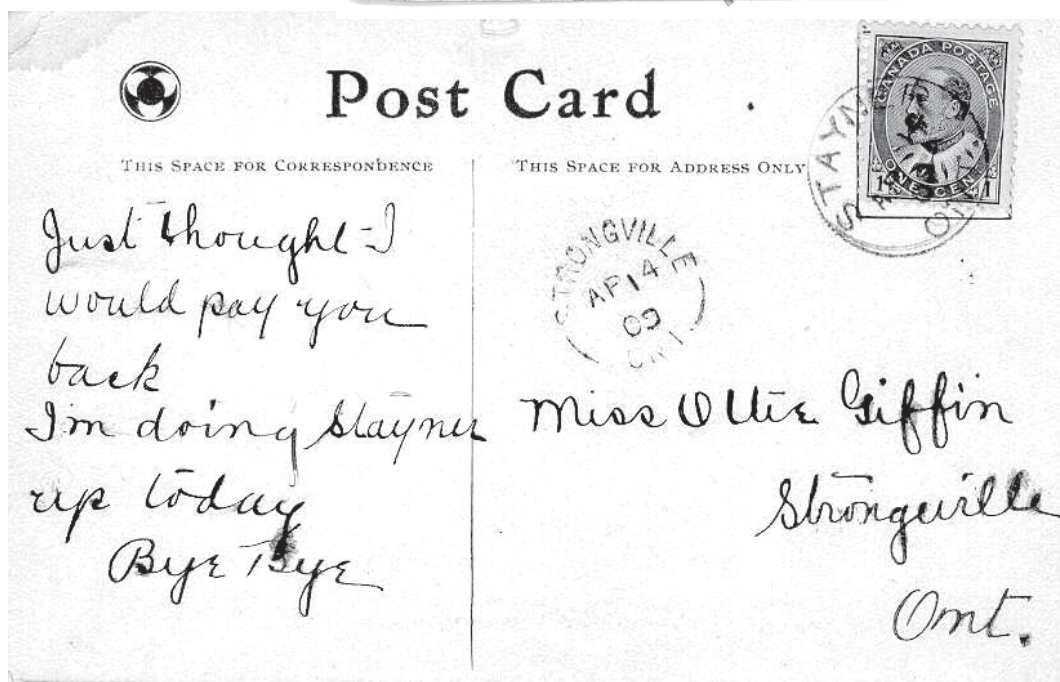 Post Card
THIS SPACE FOR CORRESPONDENCE
THIS SPACE FOR ADDRESS ONLY
CANADA POSTAGE
ONE CENT
1 1
STAYN
ONT
STRONGVILLE
AP 14
09
ONT
Just thought I
would pay you
back
I'm doing Stayner
up today
Bye Bye
Miss Ottie Giffin
Strongville
Ont.